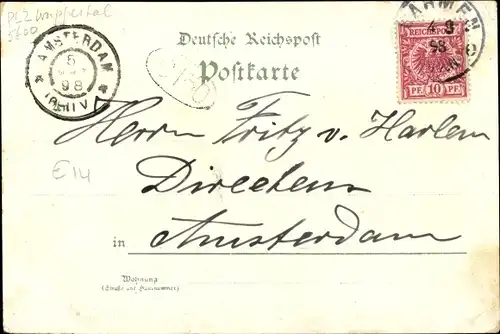 PLZ Wuppertal
5600
AMSTERDAM
5
98
BARMEN
4 3
98
REICHSPOST
PF 10 PF
Deutsche Reichspost
Postkarte
Herrn Fritz v. Harlem
E14
Directeur
in Amsterdam
Wohnung
(Straße und Hausnummer)